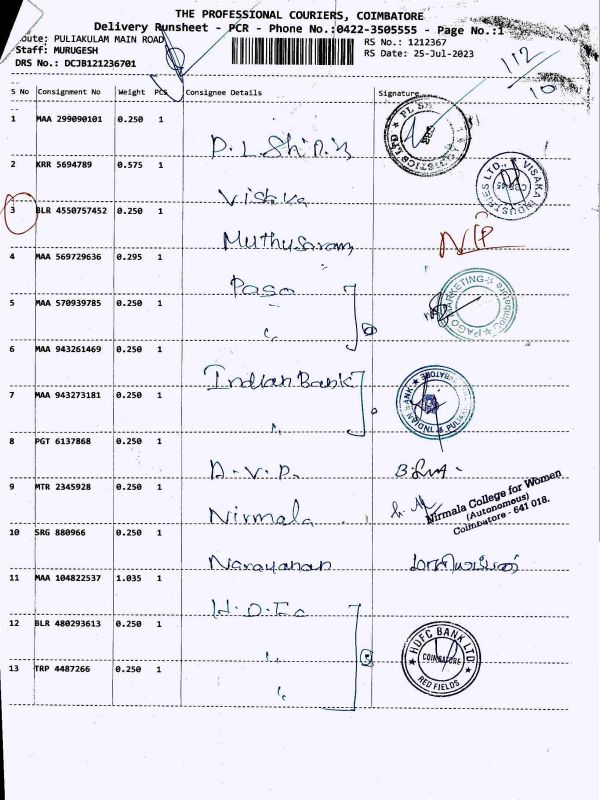 THE PROFESSIONAL COURIERS, COIMBATORE
Delivery Runsheet - PCR - Phone No.:0422-3505555 - Page No.:1
Route: PULIAKULAM MAIN ROAD
RS No.: 1212367
Staff: MURUGESH
RS Date: 25-Jul-2023
DRS No.: DCJB121236701
112
10
S No Consignment No Weight PCS Consignee Details Signature
1 MAA 299090101 0.250 1
2 KRR 5694789 0.575 1 Visaka VISAKA INDUSTRIES LTD.,
3 BLR 4550757452 0.250 1 Muthusaram
4 MAA 569729636 0.295 1 Pago PAGO MARKETING
5 MAA 570939785 0.250 1 "
6 MAA 943261469 0.250 1 Indian Bank INDIAN BANK
7 MAA 943273181 0.250 1 "
8 PGT 6137868 0.250 1 A.V.P.
9 MTR 2345928 0.250 1 Nirmala Nirmala College for Women
(Autonomous)
Coimbatore - 641 018.
10 SRG 880966 0.250 1 Narayanan
11 MAA 104822537 1.035 1
12 BLR 480293613 0.250 1 " HDFC BANK LTD
COIMBATORE
RED FIELDS
13 TRP 4487266 0.250 1 "